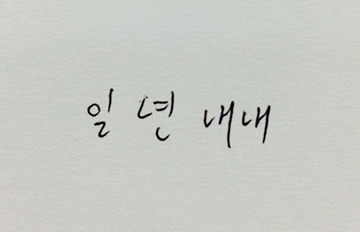 일 년 내내